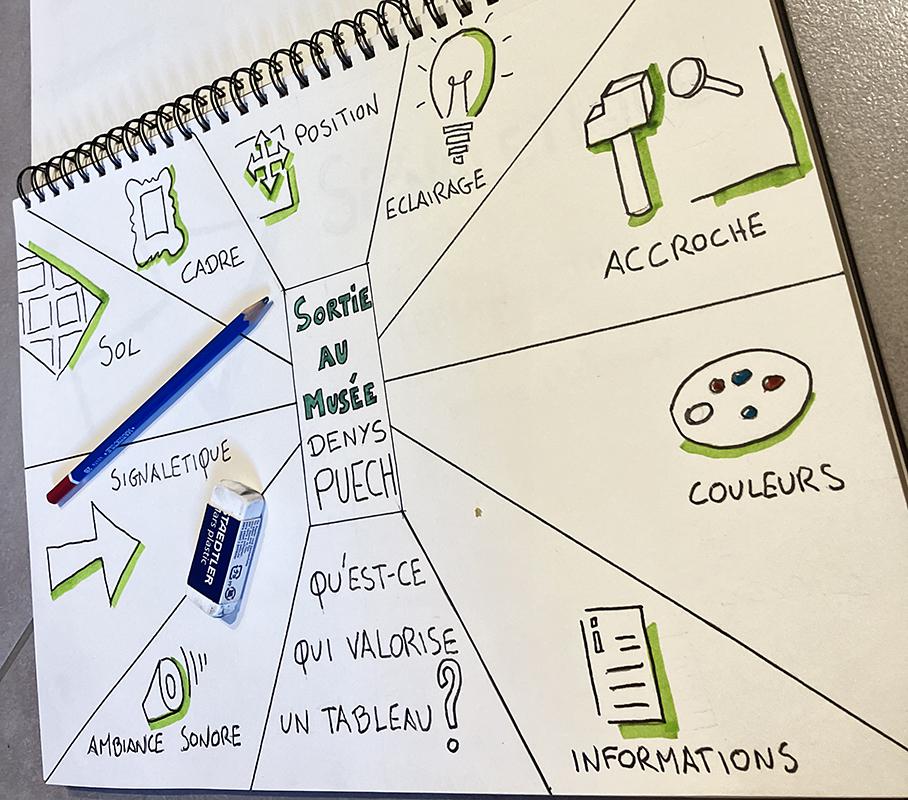 POSITION
ECLAIRAGE
ACCROCHE
CADRE
SOL
SORTIE
AU
MUSÉE
DENYS
PUECH
COULEURS
SIGNALETIQUE
STAEDTLER
mars plastic
QU'EST-CE
QUI VALORISE
UN TABLEAU ?
AMBIANCE SONORE
i
INFORMATIONS